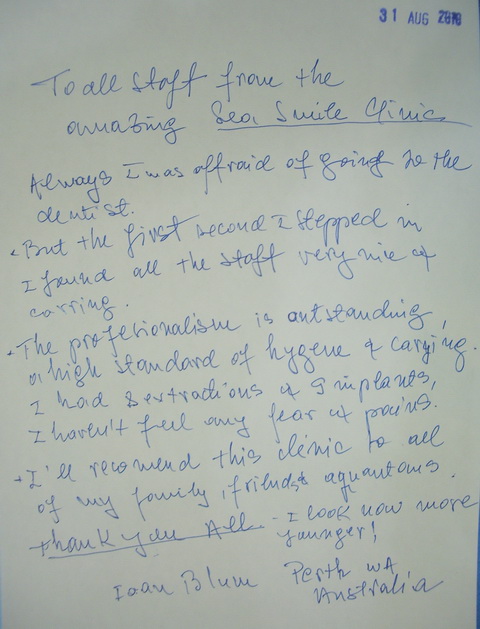 31 AUG 2010
To all staff from the
amazing Sea Smile Clinic
Always I was affraid of going to the
dentist.
But the first second I stepped in
I found all the staff very nice &
carring.
The profetionalism is outstanding,
a high standard of hygene & carying.
I had 8 extractions & 9 implants,
I haven't feel any fear & pains.
I'll recomend this clinic to all
of my family, friends & aquantous.
thank you All - I look now more
younger!
Ioan Blum Perth WA
Australia